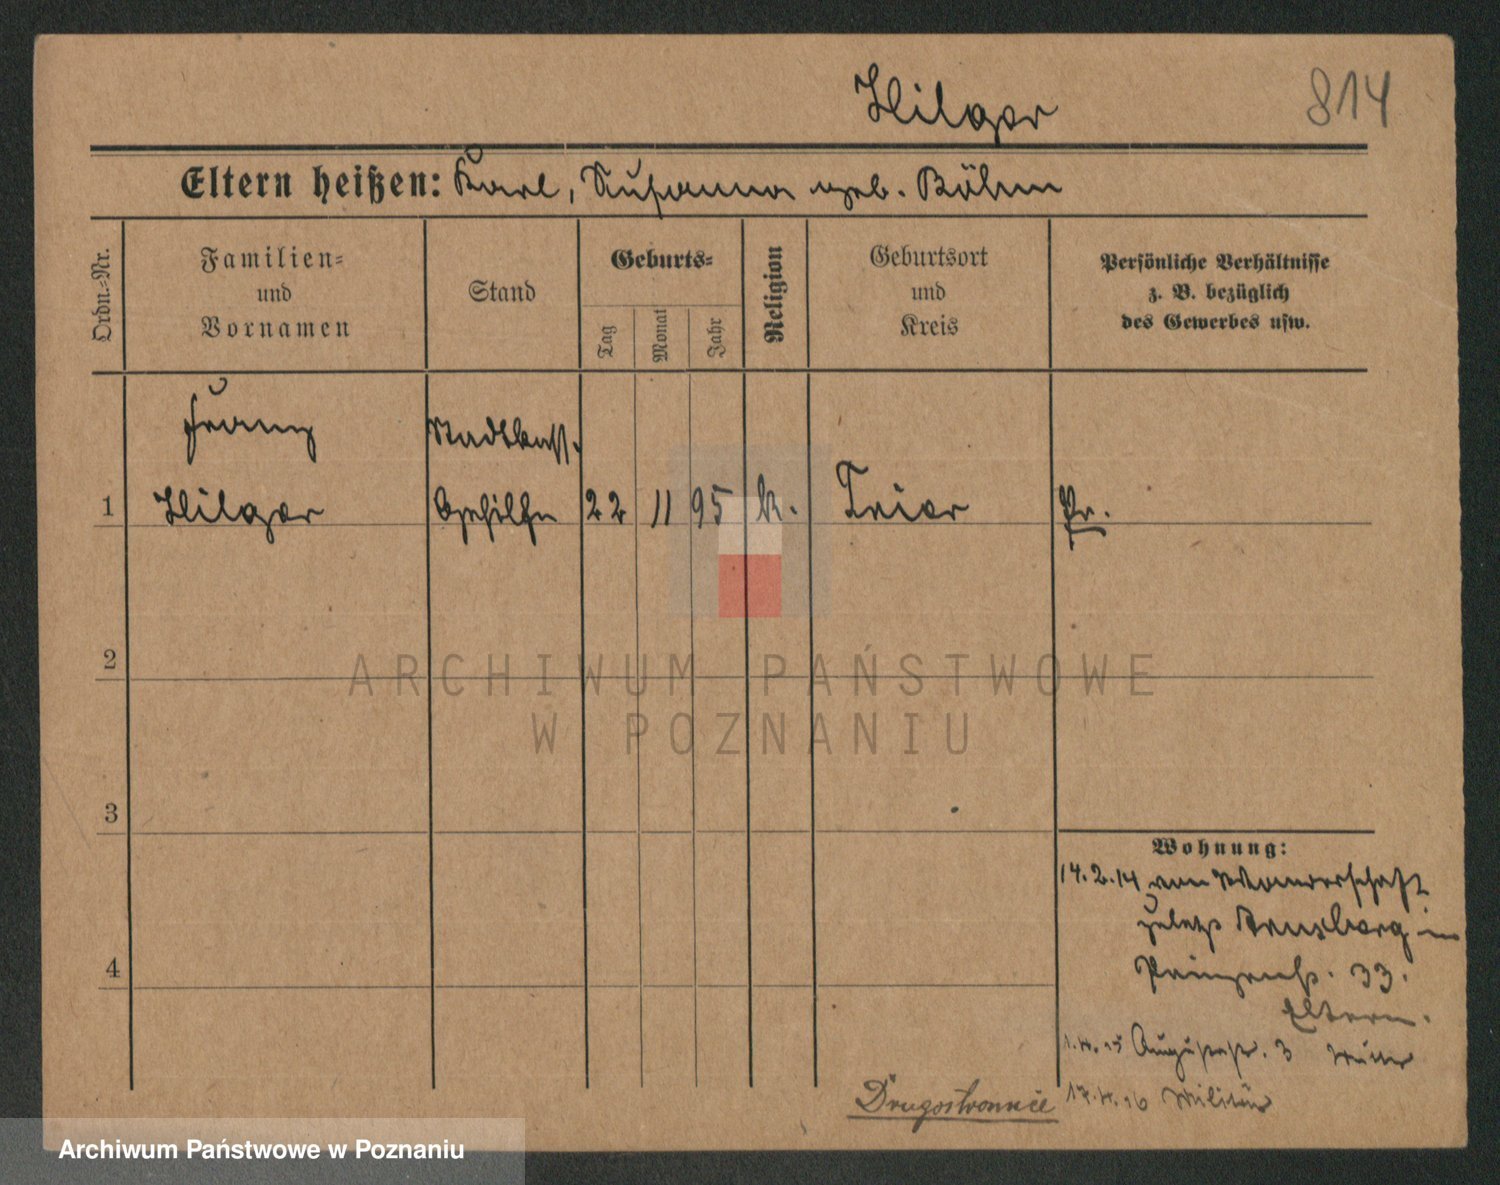 Hilger 814
Eltern heißen: Karl, Susanna geb. Böhm
Ordn.-Nr. Familien- und Vornamen Stand Geburts- Tag Monat Jahr Religion Geburtsort und Kreis Persönliche Verhältnisse z. B. bezüglich des Gewerbes usw.
Franz Stadtkass.
1 Hilger Gehilfe 22 11 95 k. Trier Pr.
2
ARCHIWUM PAŃSTWOWE
W POZNANIU
3
Wohnung:
14.2.14 von Wanderschaft
zuletzt Arnsberg in
4 Prinzenstr. 33.
Eltern.
1.4.15 Augustastr. 3 Mutter
Drugostronnie 17.4.16 Militär
Archiwum Państwowe w Poznaniu